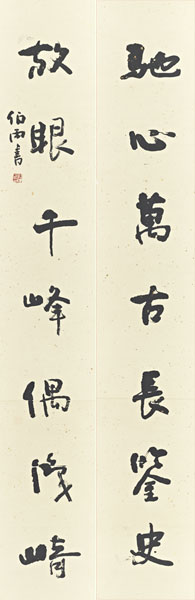 馳心萬古長鑒史
放眼千峰偶崎
伯雨書